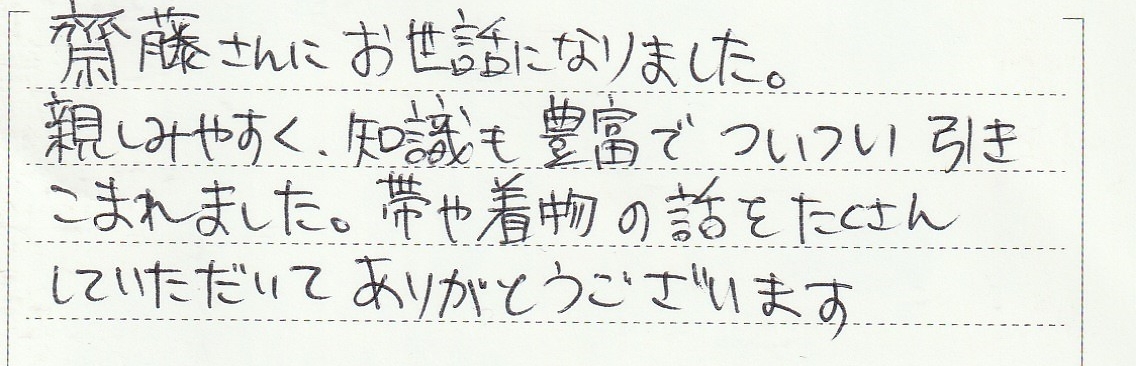 齋藤さんにお世話になりました。
親しみやすく、知識も豊富でついつい引き
こまれました。帯や着物の話をたくさん
していただいてありがとうございます